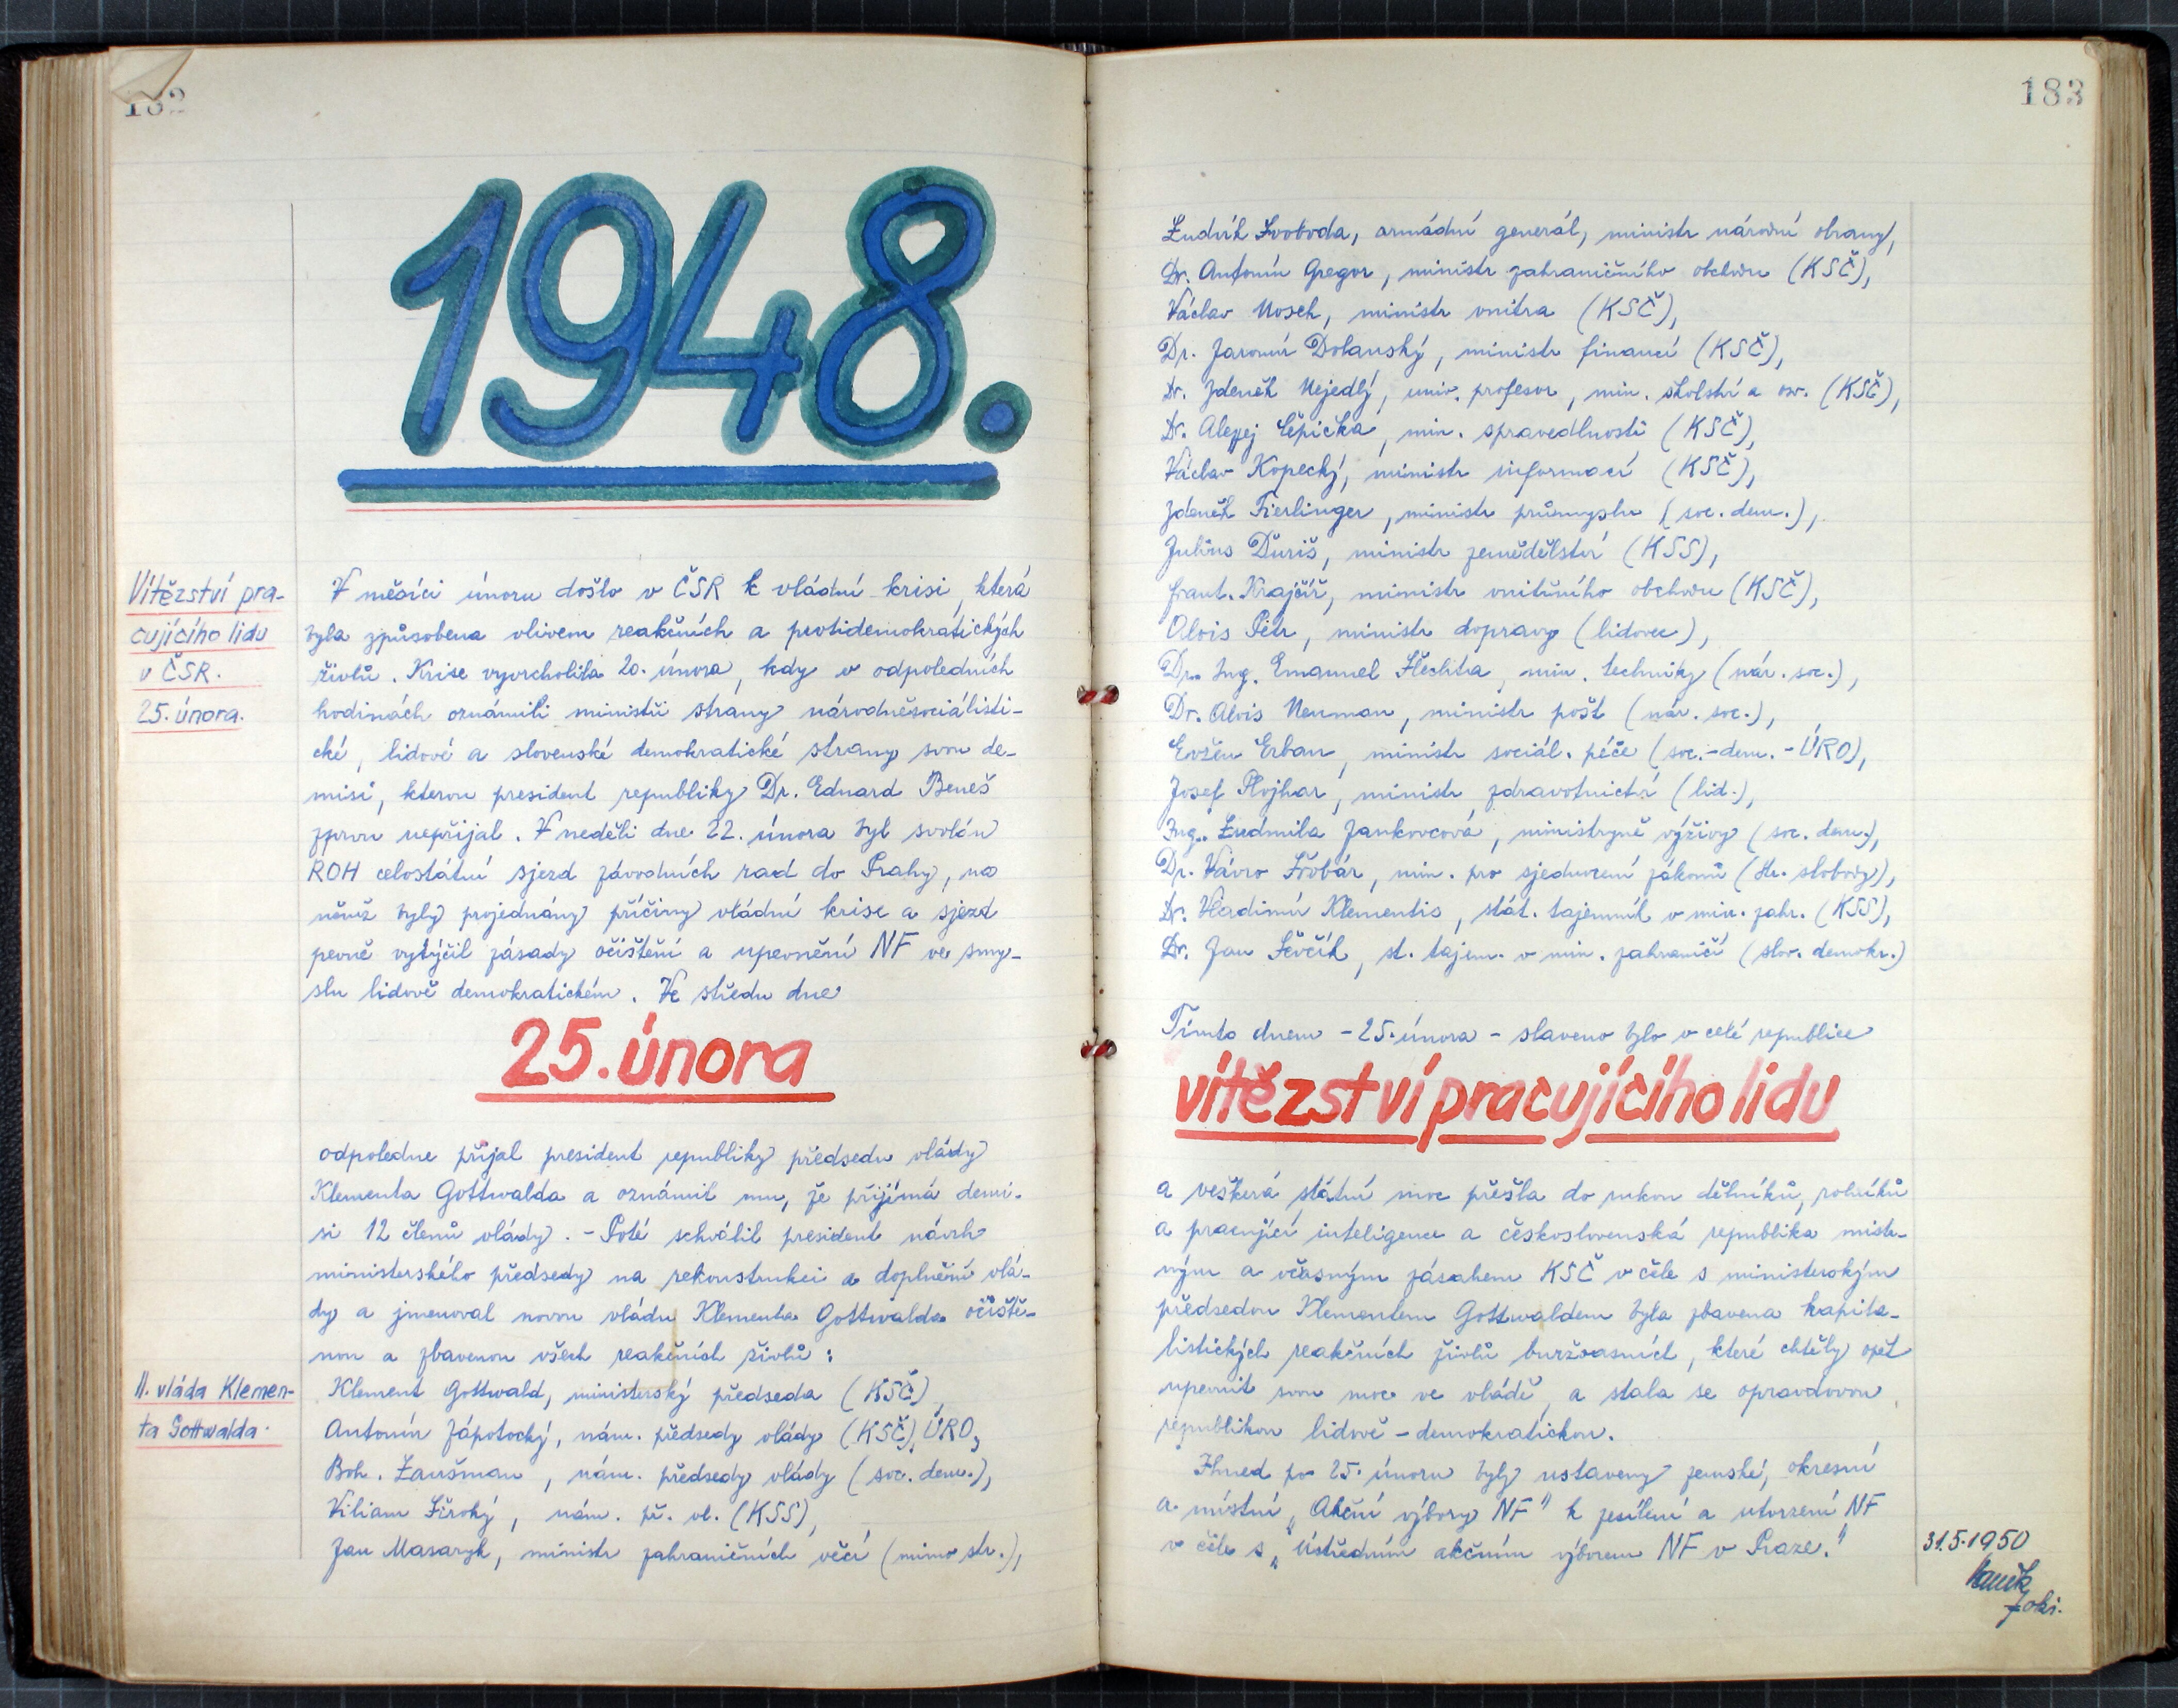 182
1948.
Vítězství pra-
cujícího lidu
v ČSR.
25. února.
V měsíci únoru došlo v ČSR k vládní krisi, která
byla způsobena vlivem reakčních a protidemokratických
živlů. Krise vyvrcholila 20. února, kdy v odpoledních
hodinách oznámili ministři strany národněsociálisti-
cké, lidové a slovenské demokratické strany svou de-
misi, kterou president republiky Dr. Eduard Beneš
zprvu nepřijal. V neděli dne 22. února byl svolán
ROH celostátní sjezd závodních rad do Prahy, na
němž byly projednány příčiny vládní krise a sjezd
pevně vytýčil zásady očištění a upevnění NF ve smy-
slu lidově demokratickém. Ve středu dne
25. února
odpoledne přijal president republiky předsedu vlády
Klementa Gottwalda a oznámil mu, že přijímá demi-
si 12 členů vlády. - Poté schválil president návrh
ministerského předsedy na rekonstrukci a doplnění vlá-
dy a jmenoval novou vládu Klementa Gottwalda očiště-
nou a zbavenou všech reakčních živlů:
II. vláda Klemen-
ta Gottwalda.
Klement Gottwald, ministerský předseda (KSČ)
Antonín Zápotocký, nám. předsedy vlády (KSČ), ÚRO,
Boh. Laušman, nám. předsedy vlády (soc. dem.),
Viliam Široký, nám. př. vl. (KSS),
Jan Masaryk, ministr zahraničních věcí (mimo str.),
183
Ludvík Svoboda, armádní generál, ministr národní obrany,
Dr. Antonín Gregor, ministr zahraničního obchodu (KSČ),
Václav Nosek, ministr vnitra (KSČ),
Dr. Jaromír Dolanský, ministr financí (KSČ),
Dr. Zdeněk Nejedlý, univ. profesor, min. školství a osv. (KSČ),
Dr. Alexej Čepička, min. spravedlnosti (KSČ),
Václav Kopecký, ministr informací (KSČ),
Zdeněk Fierlinger, ministr průmyslu (soc. dem.),
Julius Ďuriš, ministr zemědělství (KSS),
Frant. Krajčíř, ministr vnitřního obchodu (KSČ),
Alois Petr, ministr dopravy (lidovec),
Dr. Ing. Emanuel Šlechta, min. techniky (nár. soc.),
Dr. Alois Neuman, ministr pošt (nár. soc.),
Evžen Erban, ministr sociál. péče (soc.-dem. - ÚRO),
Josef Plojhar, ministr zdravotnictví (lid.),
Ing. Ludmila Jankovcová, ministryně výživy (soc. dem.),
Dr. Vávro Šrobár, min. pro sjednocení zákonů (str. slobody),
Dr. Vladimír Klementis, stát. tajemník v min. zahr. (KSS),
Dr. Jan Ševčík, st. tajem. v min. zahraničí (slov. demokr.)
Tímto dnem - 25. února - slaveno bylo v celé republice
vítězství pracujícího lidu
a veškerá státní moc přešla do rukou dělníků, rolníků
a pracující inteligence a československá republika mistr-
ným a včasným zásahem KSČ v čele s ministerským
předsedou Klementem Gottwaldem byla zbavena kapita-
listických reakčních živlů buržoasních, které chtěly opět
upevnit svou moc ve vládě, a stala se opravdovou
republikou lidově-demokratickou.
Ihned po 25. únoru byly ustaveny zemské, okresní
a místní „Akční výbory NF" k zesílení a utvrzení NF
v čele s „Ústředním akčním výborem NF v Praze."
31.5.1950